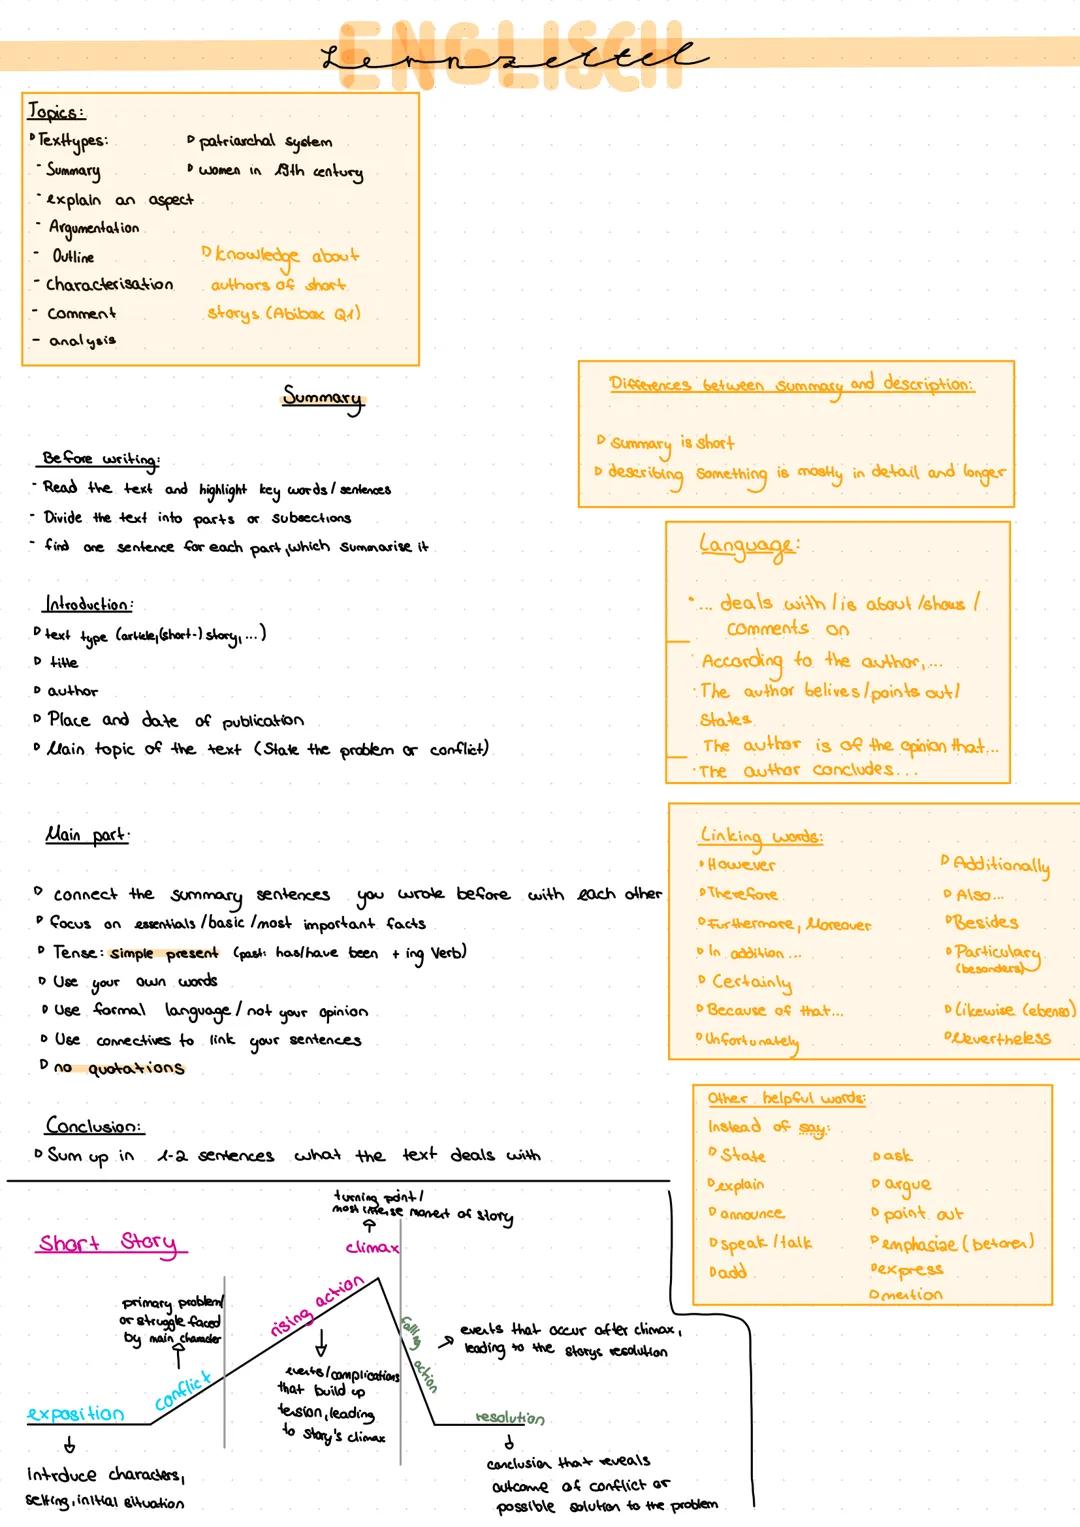 ENGLISCH
Lernzettel
Topics:
Texttypes:
- Summary
- explain an aspect
- Argumentation
- Outline
- Characterisation
- comment
- analysis
patriarchal system
women in 19th century
knowledge about
authors of short
storys (Abibox Q1)
Summary
Before writing:
- Read the text and highlight key words/sentences
- Divide the text into parts or subsections
- find one sentence for each part, which summarise it
Introduction:
text type (article, (short-) story, ...)
title
author
Place and date of publication
Main topic of the text (State the problem or conflict)
Main part:
connect the summary sentences you wrote before with each other
Focus on essentials/basic/most important facts
Tense: simple present (past: has/have been + ing Verb)
Use your own words
Use formal language/not your opinion
Use connectives to link your sentences
no quotations
Conclusion:
Sum up in 1-2 sentences what the text deals with
Differences between summary and description:
Summary is short
describing something is mostly in detail and longer
Language:
... deals with/is about/shows/
comments on
According to the author,...
The author belives/points out/
States
The author is of the opinion that...
The author concludes...
Linking words:
However
Therefore
Furthermore, Moreover
In addition ...
Certainly
Because of that...
Unfortunately
Additionally
Also...
Besides
Particulary
(besonders)
Likewise (ebenso)
Nevertheless
Other helpful words:
Instead of say:
State
explain
announce
speak/talk
add
ask
argue
point out
emphasize (betonen)
express
mention
Short Story
turning point/
most intense moment of story
climax
primary problem/
or struggle faced
by main character
rising action
falling action
events that occur after climax,
leading to the storys resolution
conflict
events/complications
that build up
tension, leading
to story's climax
exposition
resolution
Introduce characters,
setting, initial situation
conclusion that reveals
outcome of conflict or
possible solution to the problem